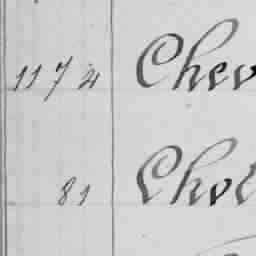 1174 Chev
81 Chol